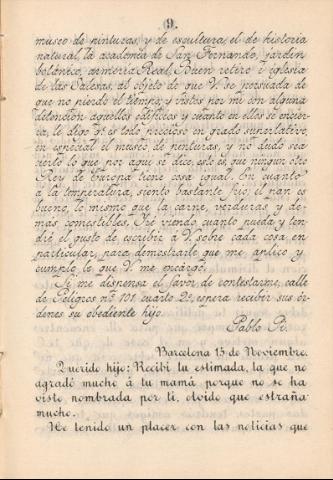 (9)
museo de pinturas, y de escultura, el de historia
natural, la academia de San Fernando, jardin
botánico, armería Real, Buen retiro é iglesia
de las Salesas, al objeto de que V. se persuada de
que no pierdo el tiempo, y vistos por mi con alguna
detención aquellos edificios y cuanto en ellos se encier-
ra, le digo q.e es todo precioso en grado superlativo,
en especial el museo de pinturas, y no dudo sea
cierto lo que por aquí se dice, esto es, que ningun otro
Rey de Europa tiene cosa igual. En cuanto
á la temperatura, siento bastante frio, el pan es
bueno, lo mismo que la carne, verduras, y de-
más comestibles. Iré viendo cuanto pueda y ten-
dré el gusto de escribir á V. sobre cada cosa en
particular, para demostrarle que me aplico y
cumplo lo que V. me encargó.
Si me dispensa el favor de contestarme, calle
de Peligros nº 101 cuarto 2º, espera recibir sus ór-
denes su obediente hijo.
Pablo Pi.
Barcelona 15 de Noviembre.
Querido hijo: Recibí tu estimada, la que no
agradó mucho á tu mamá porque no se ha
visto nombrada por ti, olvido que estraña
mucho.
He tenido un placer con las noticias que